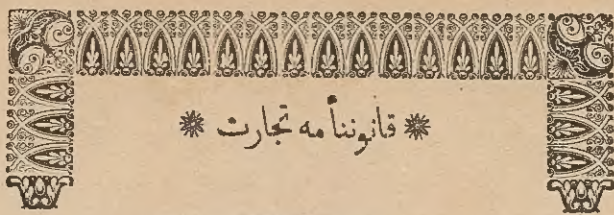 ❋ قانوننأمه تجارت ❋